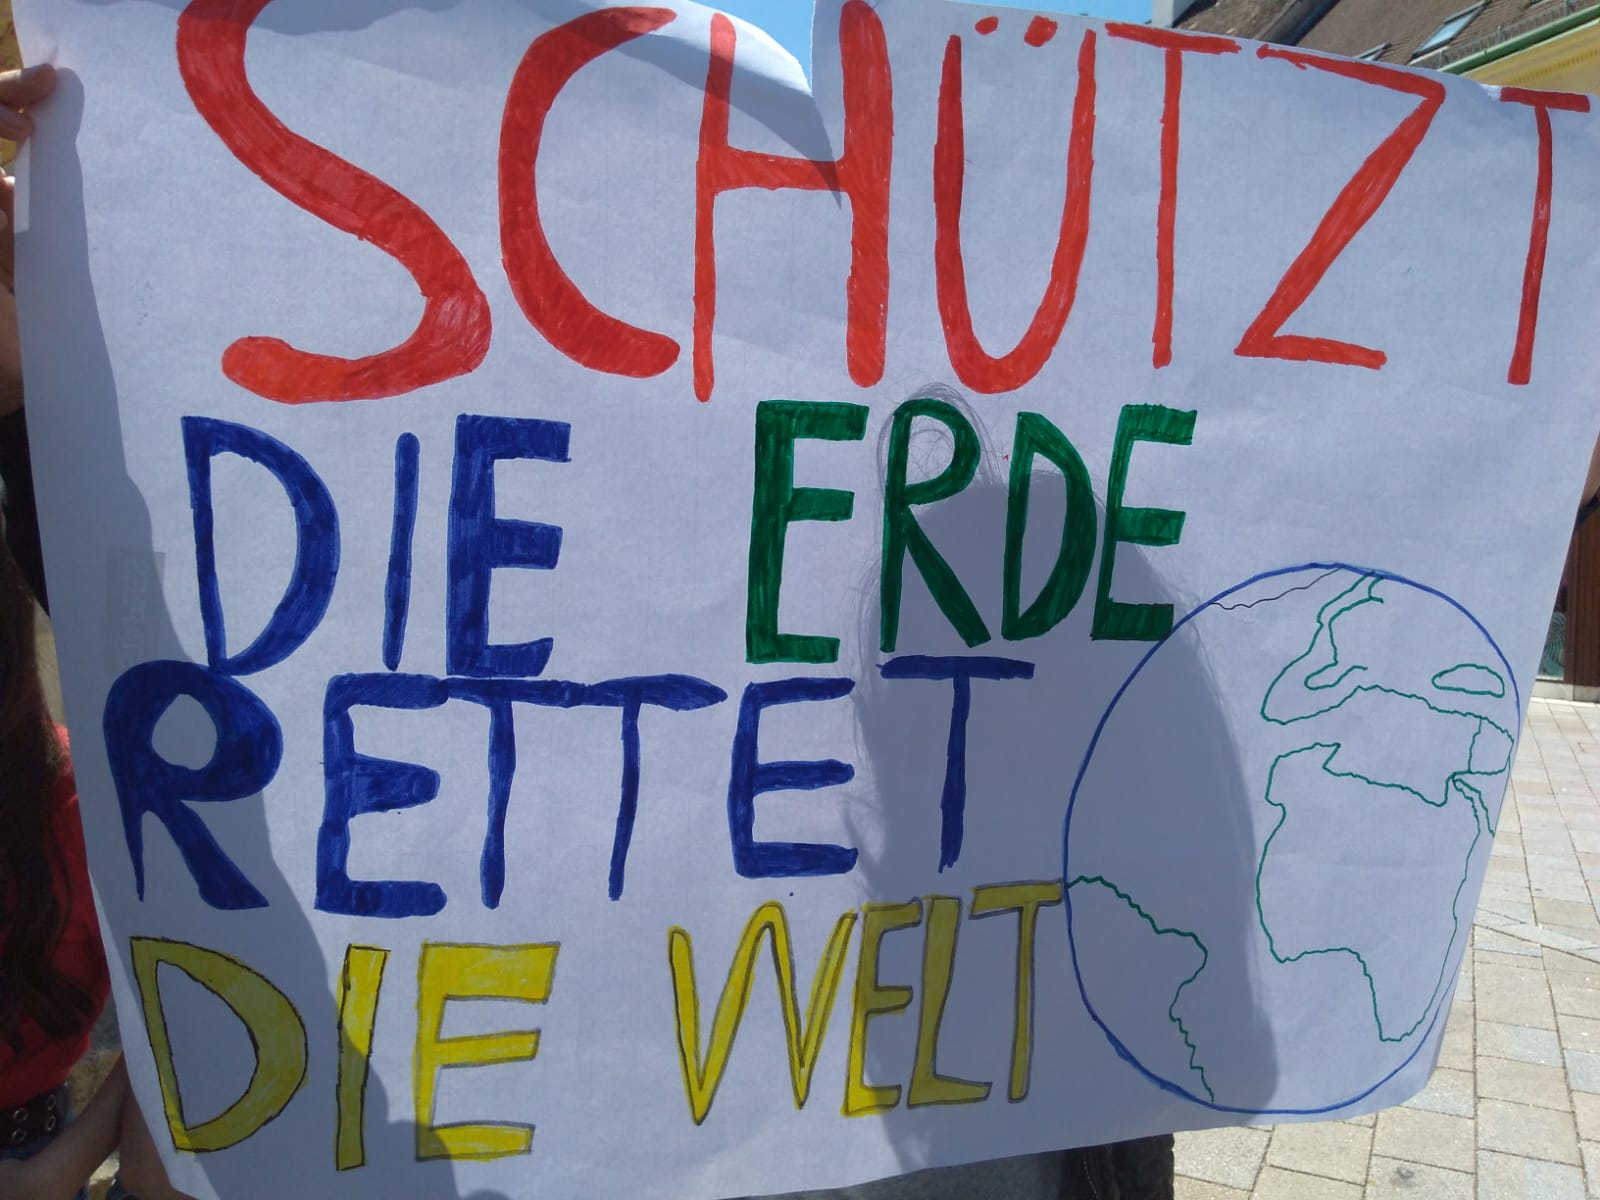 SCHÜTZT
DIE ERDE
RETTET
DIE WELT